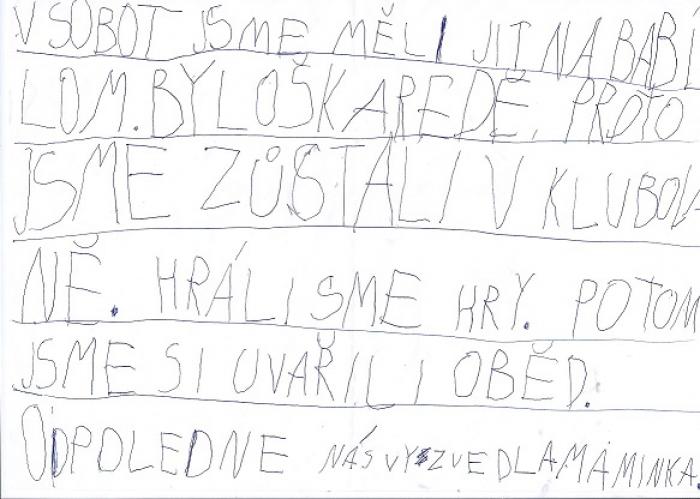 V SOBOT JSME MĚLI JÍT NA BABÍ
LOM. BYLO ŠKAREDĚ, PROTO
JSME ZŮSTALI V KLUBOV
NĚ. HRÁLI SME HRY. POTOM
JSME SI UVAŘILI OBĚD.
ODPOLEDNE NÁS VYZVEDLA MAMINKA.